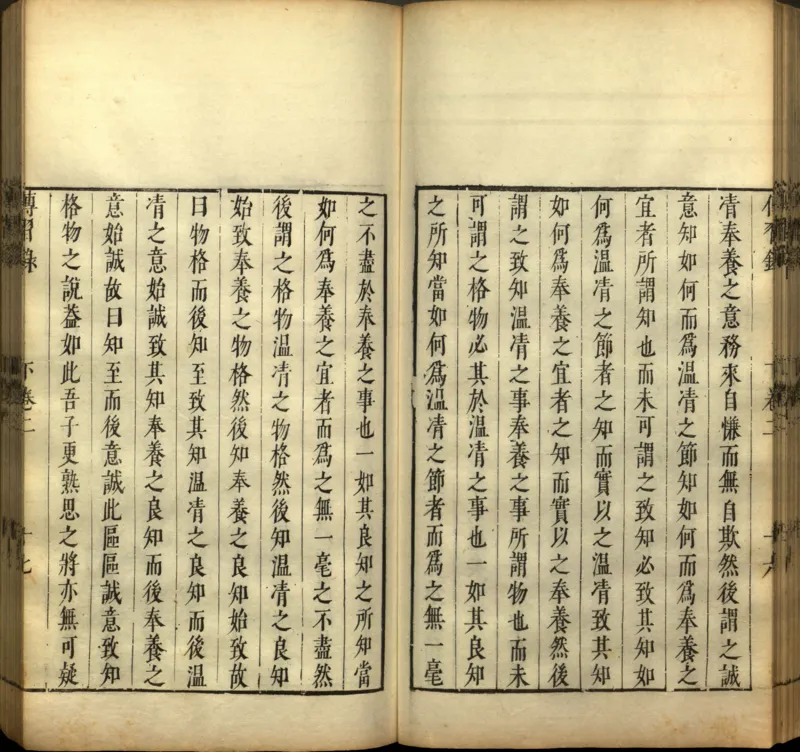 凊奉養之意務求自慊而無自欺然後謂之誠
意知如何而為温凊之節知如何而爲奉養之
宜者所謂知也而未可謂之致知必致其知如
何為温凊之節者之知而實以之温凊致其知
如何爲奉養之宜者之知而實以之奉養然後
謂之致知温凊之事奉養之事所謂物也而未
可謂之格物必其於温凊之事也一如其良知
之所知當如何爲温凊之節者而爲之無一毫
之不盡於奉養之事也一如其良知之所知當
如何爲奉養之宜者而爲之無一毫之不盡然
後謂之格物温凊之物格然後知温凊之良知
始致奉養之物格然後知奉養之良知始致故
曰物格而後知至致其知温凊之良知而後温
凊之意始誠致其知奉養之良知而後奉養之
意始誠故曰知至而後意誠此區區誠意致知
格物之說葢如此吾子更熟思之將亦無可疑
傳習録 下卷二 十七